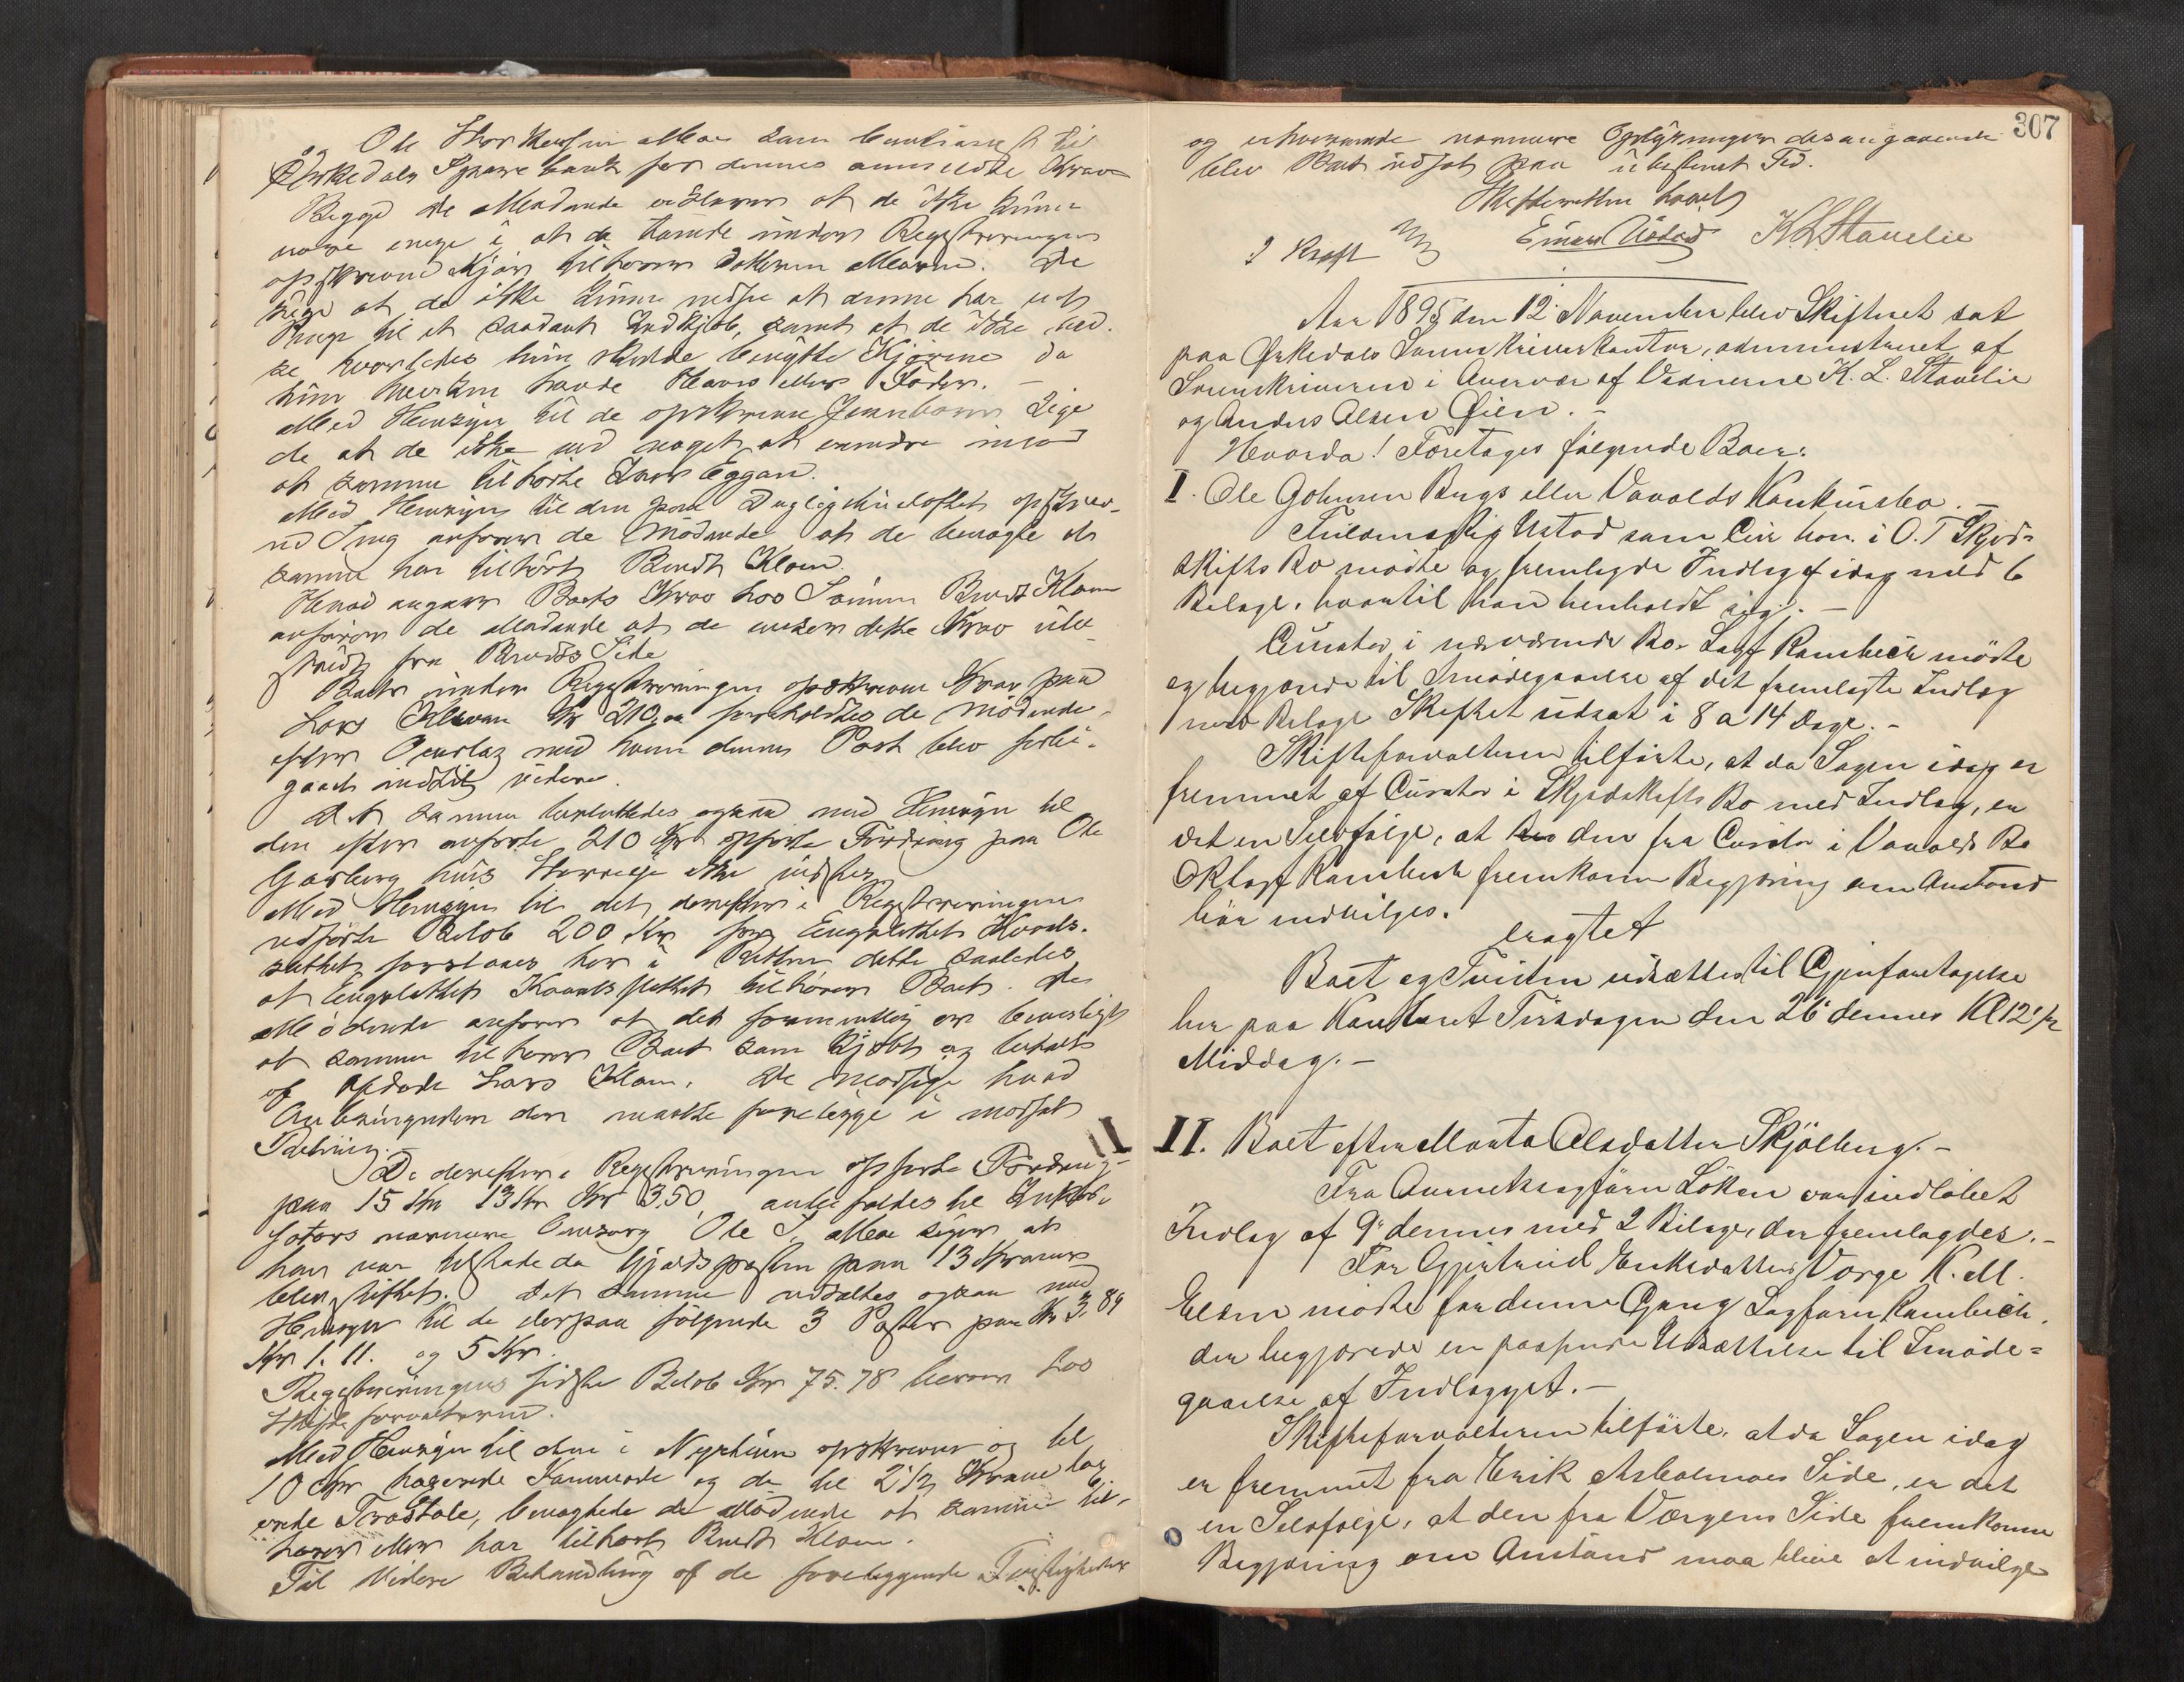 og Ole Thorkensen Moe som Cautionist til
Ørkedals Sparebank for dennes anmeldte Krav
Begge de Mødende erklærer at de ikke kunne
være enige i at de tvende under Registreringen
opskrevne Kjør tilhører Datteren Maren. De
siger at de ikke kunne indse at denne har
Penge til et saadant Indkjøb, samt at de ikke ved
se hvorledes hun skulde benytte Kjørene da
hun hverken havde Havn eller Foder. -
Med Hensyn til de opskrevne siger
de at de ikke ved noget at erindre imod
at samme tilhørte Eggan.
Med Hensyn til den paa opskrev-
ne Seng anfører de Mødende at de benægte at
samme har tilhørt Berndt Kloen.
Hvad angaar Boets Krav hos Sønnen Berndt Kloen
anfører de Mødende at de anser dette Krav ube-
stridt fra Berndts Side
Boets under Registreringen opskrevne Krav paa
Lars Kr 210,00 forholdtes de Mødende,
efter Overlæg med ham dennes Post blev forbi-
gaaet indtil videre.
Det samme besluttedes ogsaa med Hensyn til
den efter anførte 210 Kr opførte Fordring paa Ole
Garberg hvis ikke indsees
Med Hensyn til det derefter i Registreringen
opførte Beløb 200 Kr for Engslettet Kvands-
slettet, forstaaes her i Retten dette saaledes
at Engslettet Kvandsslettet tilhører Boet. De
Mødende anfører at det formentlig er beviseligt
at samme tilhører Boet som kjøbt og betalt
af Afdøde Lars Kloen. De modsige hvad
der maatte foreligge i modsat
Retning.
De derefter i Registreringen opførte Fordring-
paa 15 Kr 13 Kr Kr 3,50, anbefaldes til Inkas-
sators nærmere Omsorg Ole T. Moe siger at
han var tilstede da Gjældsposten paa 13 Kroner
blev stiftet. Det samme udtaltes ogsaa med
Hensyn til de derpaa følgende 3 Poster paa Kr 3,89
Kr 1.11. og 5 Kr.
Registreringens sidste Beløb Kr 75.78 beroer hos
Skifteforvalteren.
Med Hensyn til den i Nystuen opskrevne og til
10 Kr Kammode og de til 2 1/2 Krone tax
erede Træstole, benægtede de Mødende at samme til-
hører eller har tilhørt Berndt Kloen.
Til videre Behandling af de foreliggende Tvistigheder
307
og erhvervende nærmere Oplysninger desangaaende
blev Boet udsat paa ubestemt Tid.
Skifteretten hævet
J Kraft Einar Ustad K L Stavelie
Aar 1895 den 12. November blev Skifteret sat
paa Ørkedals Sorenskriverkontor, administreret af
Sorenskriveren i Overvær af Vidnerne K. L. Stavelie
og Anders Olsen Øien. -
Hvorda! Foretages følgende Boer:
I. Ole Johnsen Bugs eller Vavolds Konkursbo. -
Fuldmægtig Ustad som Cur bon. i O. T Skjøl-
skifts Bo mødte og fremlagde Indlæg af idag med 6
Bilage, hvortil han henholdt sig. -
Curator i nærværende Bo Sagf Rambech mødte
og begjærede til Imødegaaelse af det fremlagte Indlæg
med Bilage Skiftet udsat i 8 a 14 Dage. -
Skifteforvalteren tilførte, at da Sagen idag er
fremmet af Curator i Skjølskifts Bo med Indlæg, er
det en Selvfølge, at den fra Curator i Vavolds Bo
O Sagf Rambech fremkomne Begjæring om Anstand
bør indvilges.
eragtet
Boet og Tvisten udsættes til Gjenforetagelse
her paa Kontoret Tirsdagen den 26 dennes Kl 12 1/2
Middag. -
II II. Boet efter Marta Olsdatter Skjølberg. -
Fra Overretssagfører Løken var indløbet
Indlæg af 9' dennes med 2 Bilage, der fremlagdes. -
For Gjertrud Eriksdatters Værge K. M.
Elsen mødte for denne Gang Sagfører Rambech,
der begjærede en passende Udsættelse til Imøde-
gaaelse af Indlægget. -
Skifteforvalteren tilførte, at da Sagen idag
er fremmet fra Erik Asbølmoes Side, er det
en Selvfølge, at den fra Værgens Side fremkomne
Begjæring om Anstand maa blive at indvilge